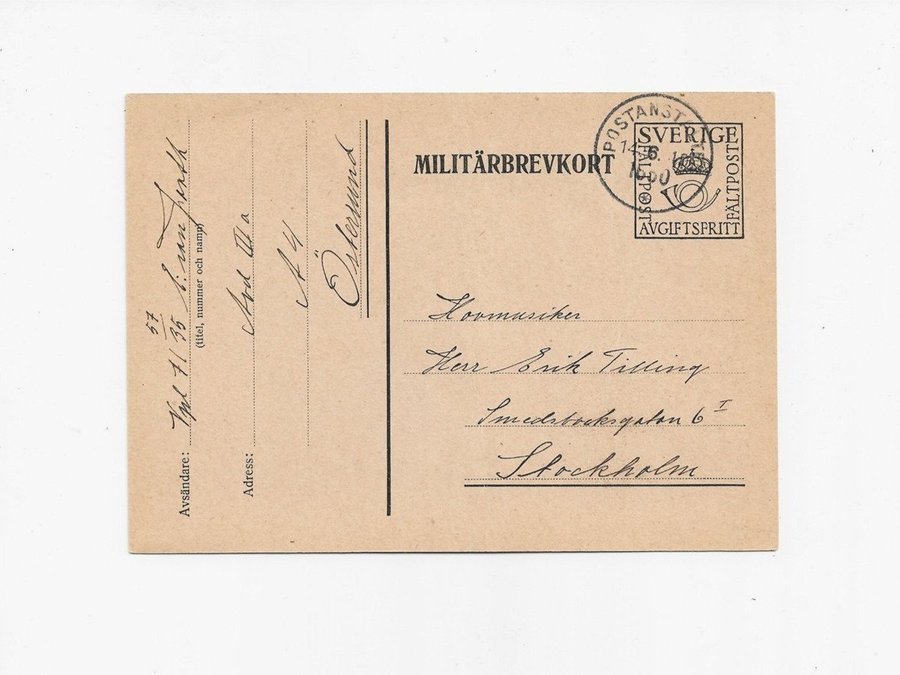 Avsändare: Vpl 71 57/35 E. van
(titel, nummer och namn)
Adress: Avd III a
A 4
Östersund
MILITÄRBREVKORT
POSTANST
14.6.
SVERIGE
FÄLTPOST
FÄLTPOST
AVGIFTSFRITT
Hovmusiker
Herr Erik Tilling
Smedsbacksgatan 6 I
Stockholm